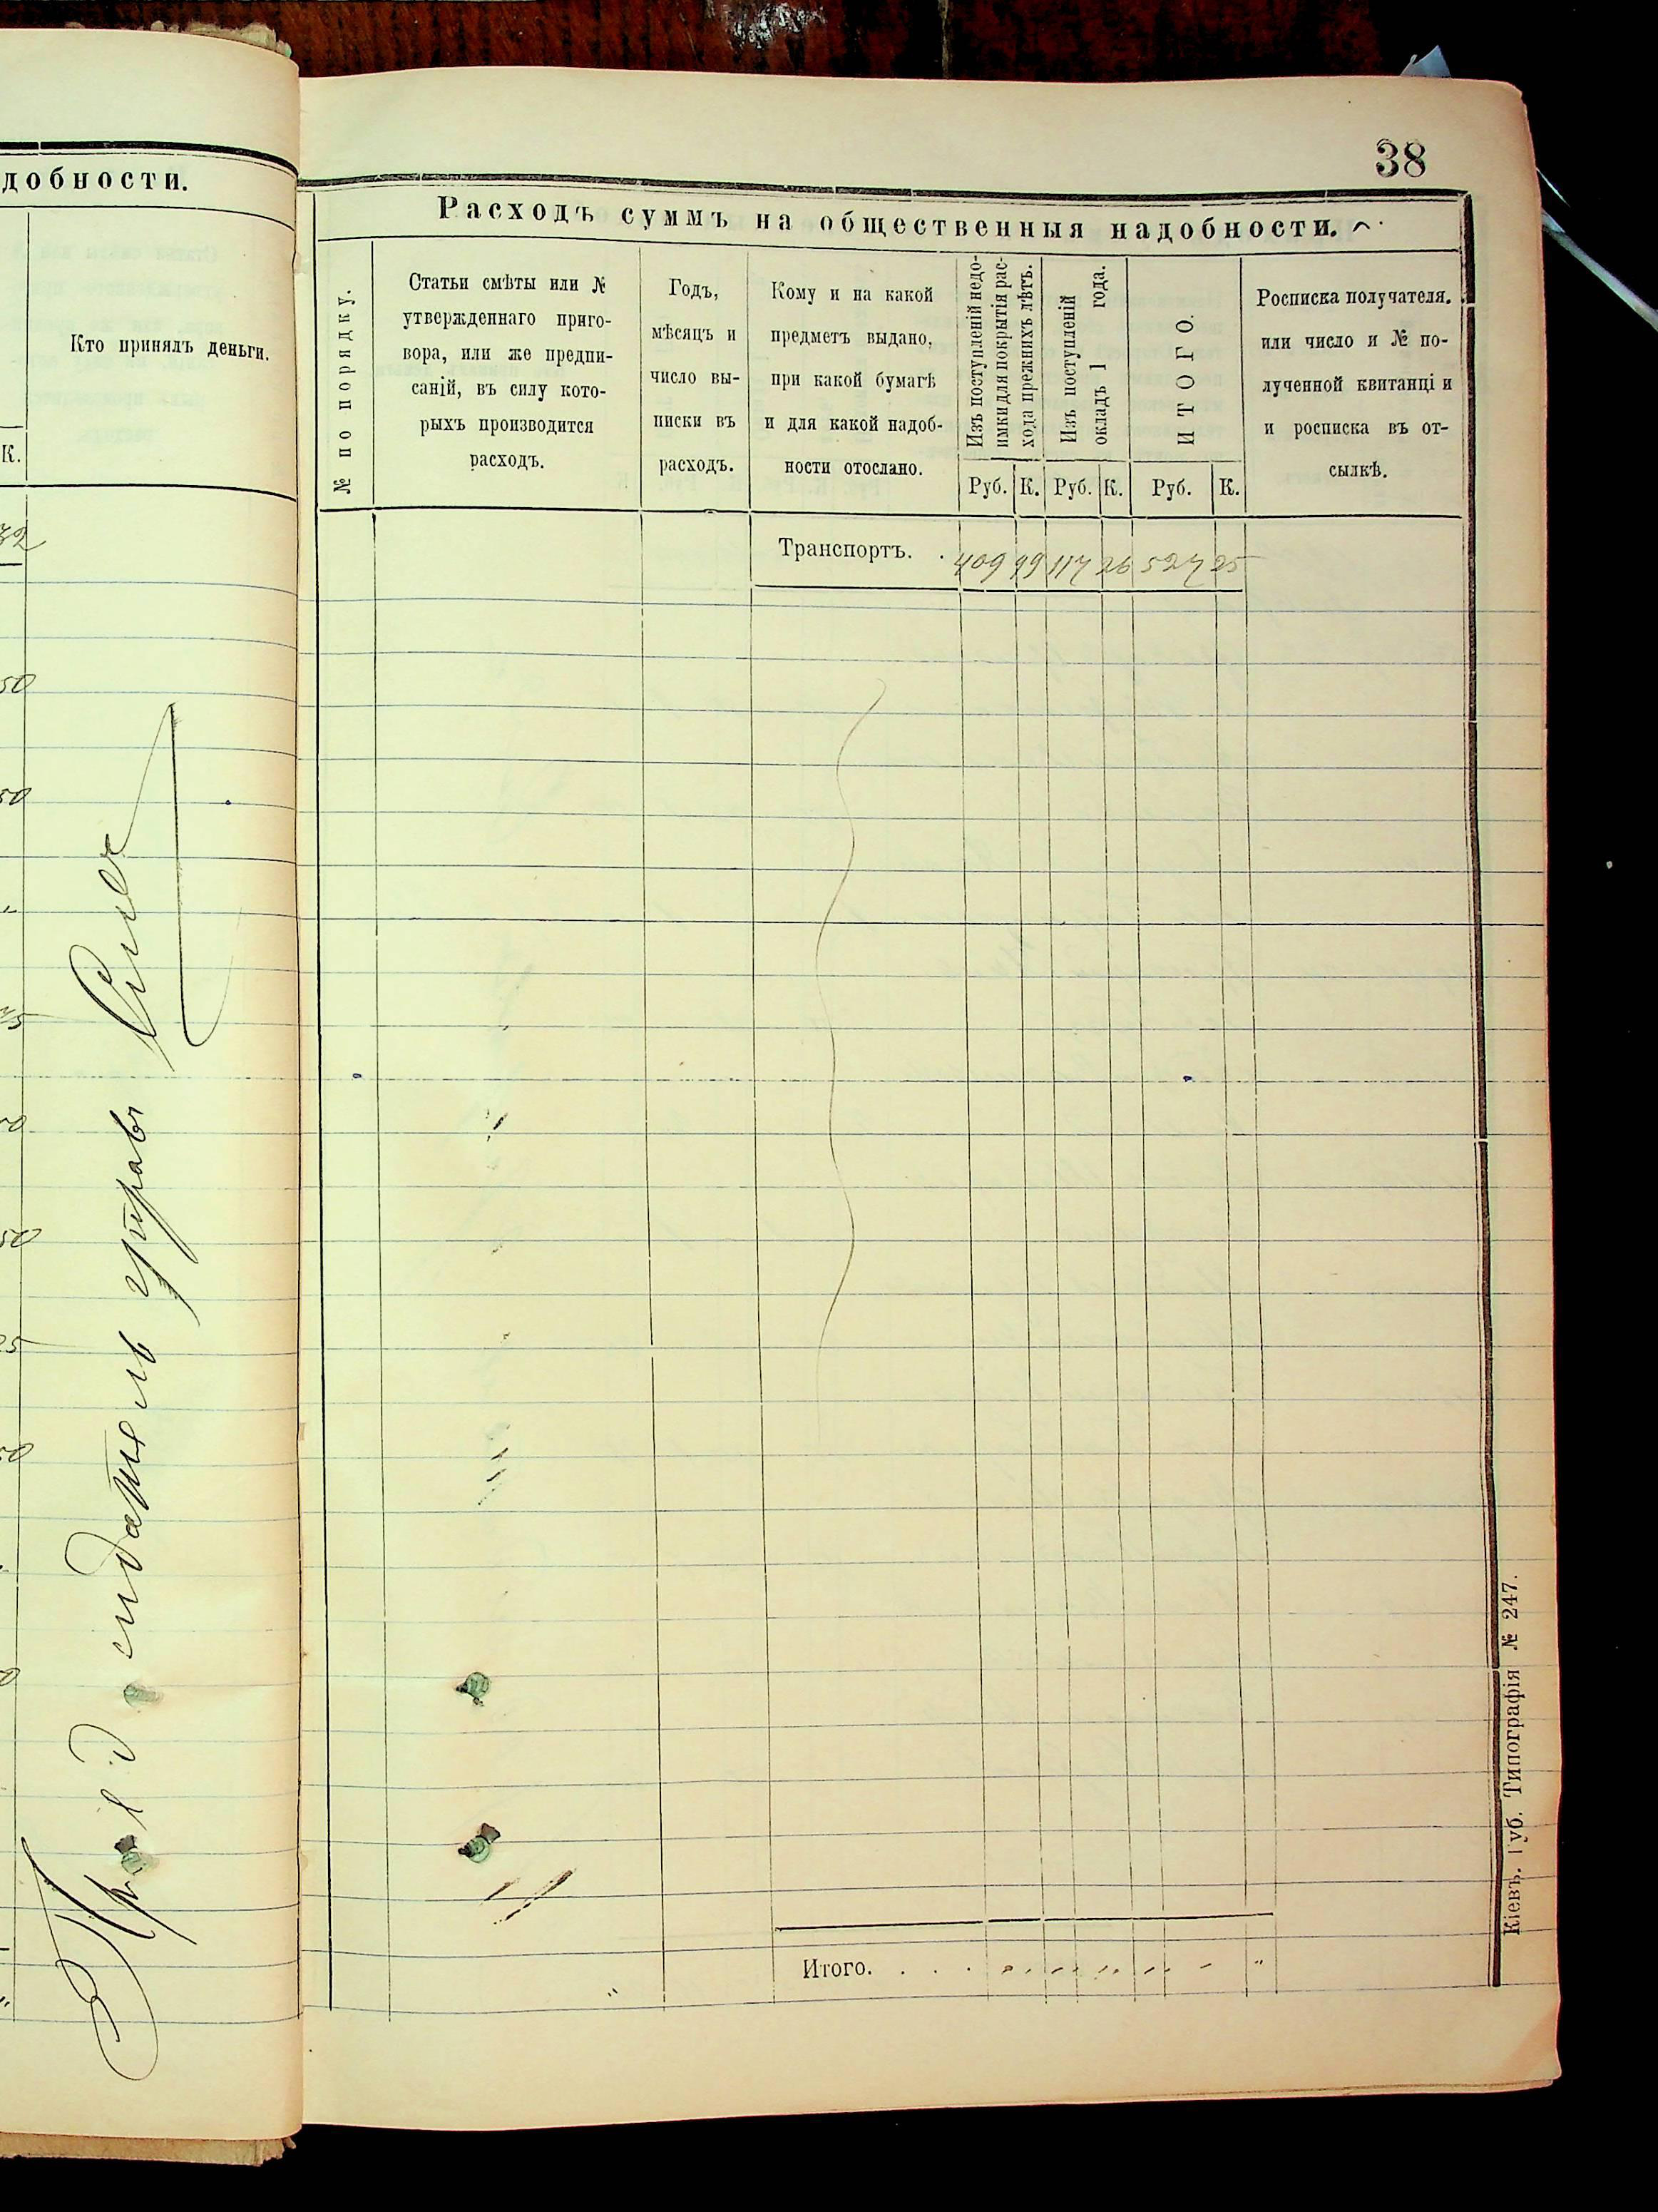 добности.
Кто принялъ деньги.
К.
50
50
50
25
50
38
Расходъ суммъ на общественныя надобности.
№ по порядку.
Статьи смѣты или №
утвержденнаго приго-
вора, или же предпи-
саній, въ силу кото-
рыхъ производится
расходъ.
Годъ,
мѣсяцъ и
число вы-
писки въ
расходъ.
Кому и на какой
предметъ выдано,
при какой бумагѣ
и для какой надоб-
ности отослано.
Изъ поступленій недо-
имки для покрытія рас-
хода прежнихъ лѣтъ.
Изъ поступленій
окладъ 1 года.
ИТОГО.
Росписка получателя.
или число и № по-
лученной квитанціи
и росписка въ от-
сылкѣ.
Руб. К. Руб. К. Руб. К.
Транспортъ. . 409 99 117 26 527 25
Итого. . . .
Кіевъ. Губ. Типографія № 247.